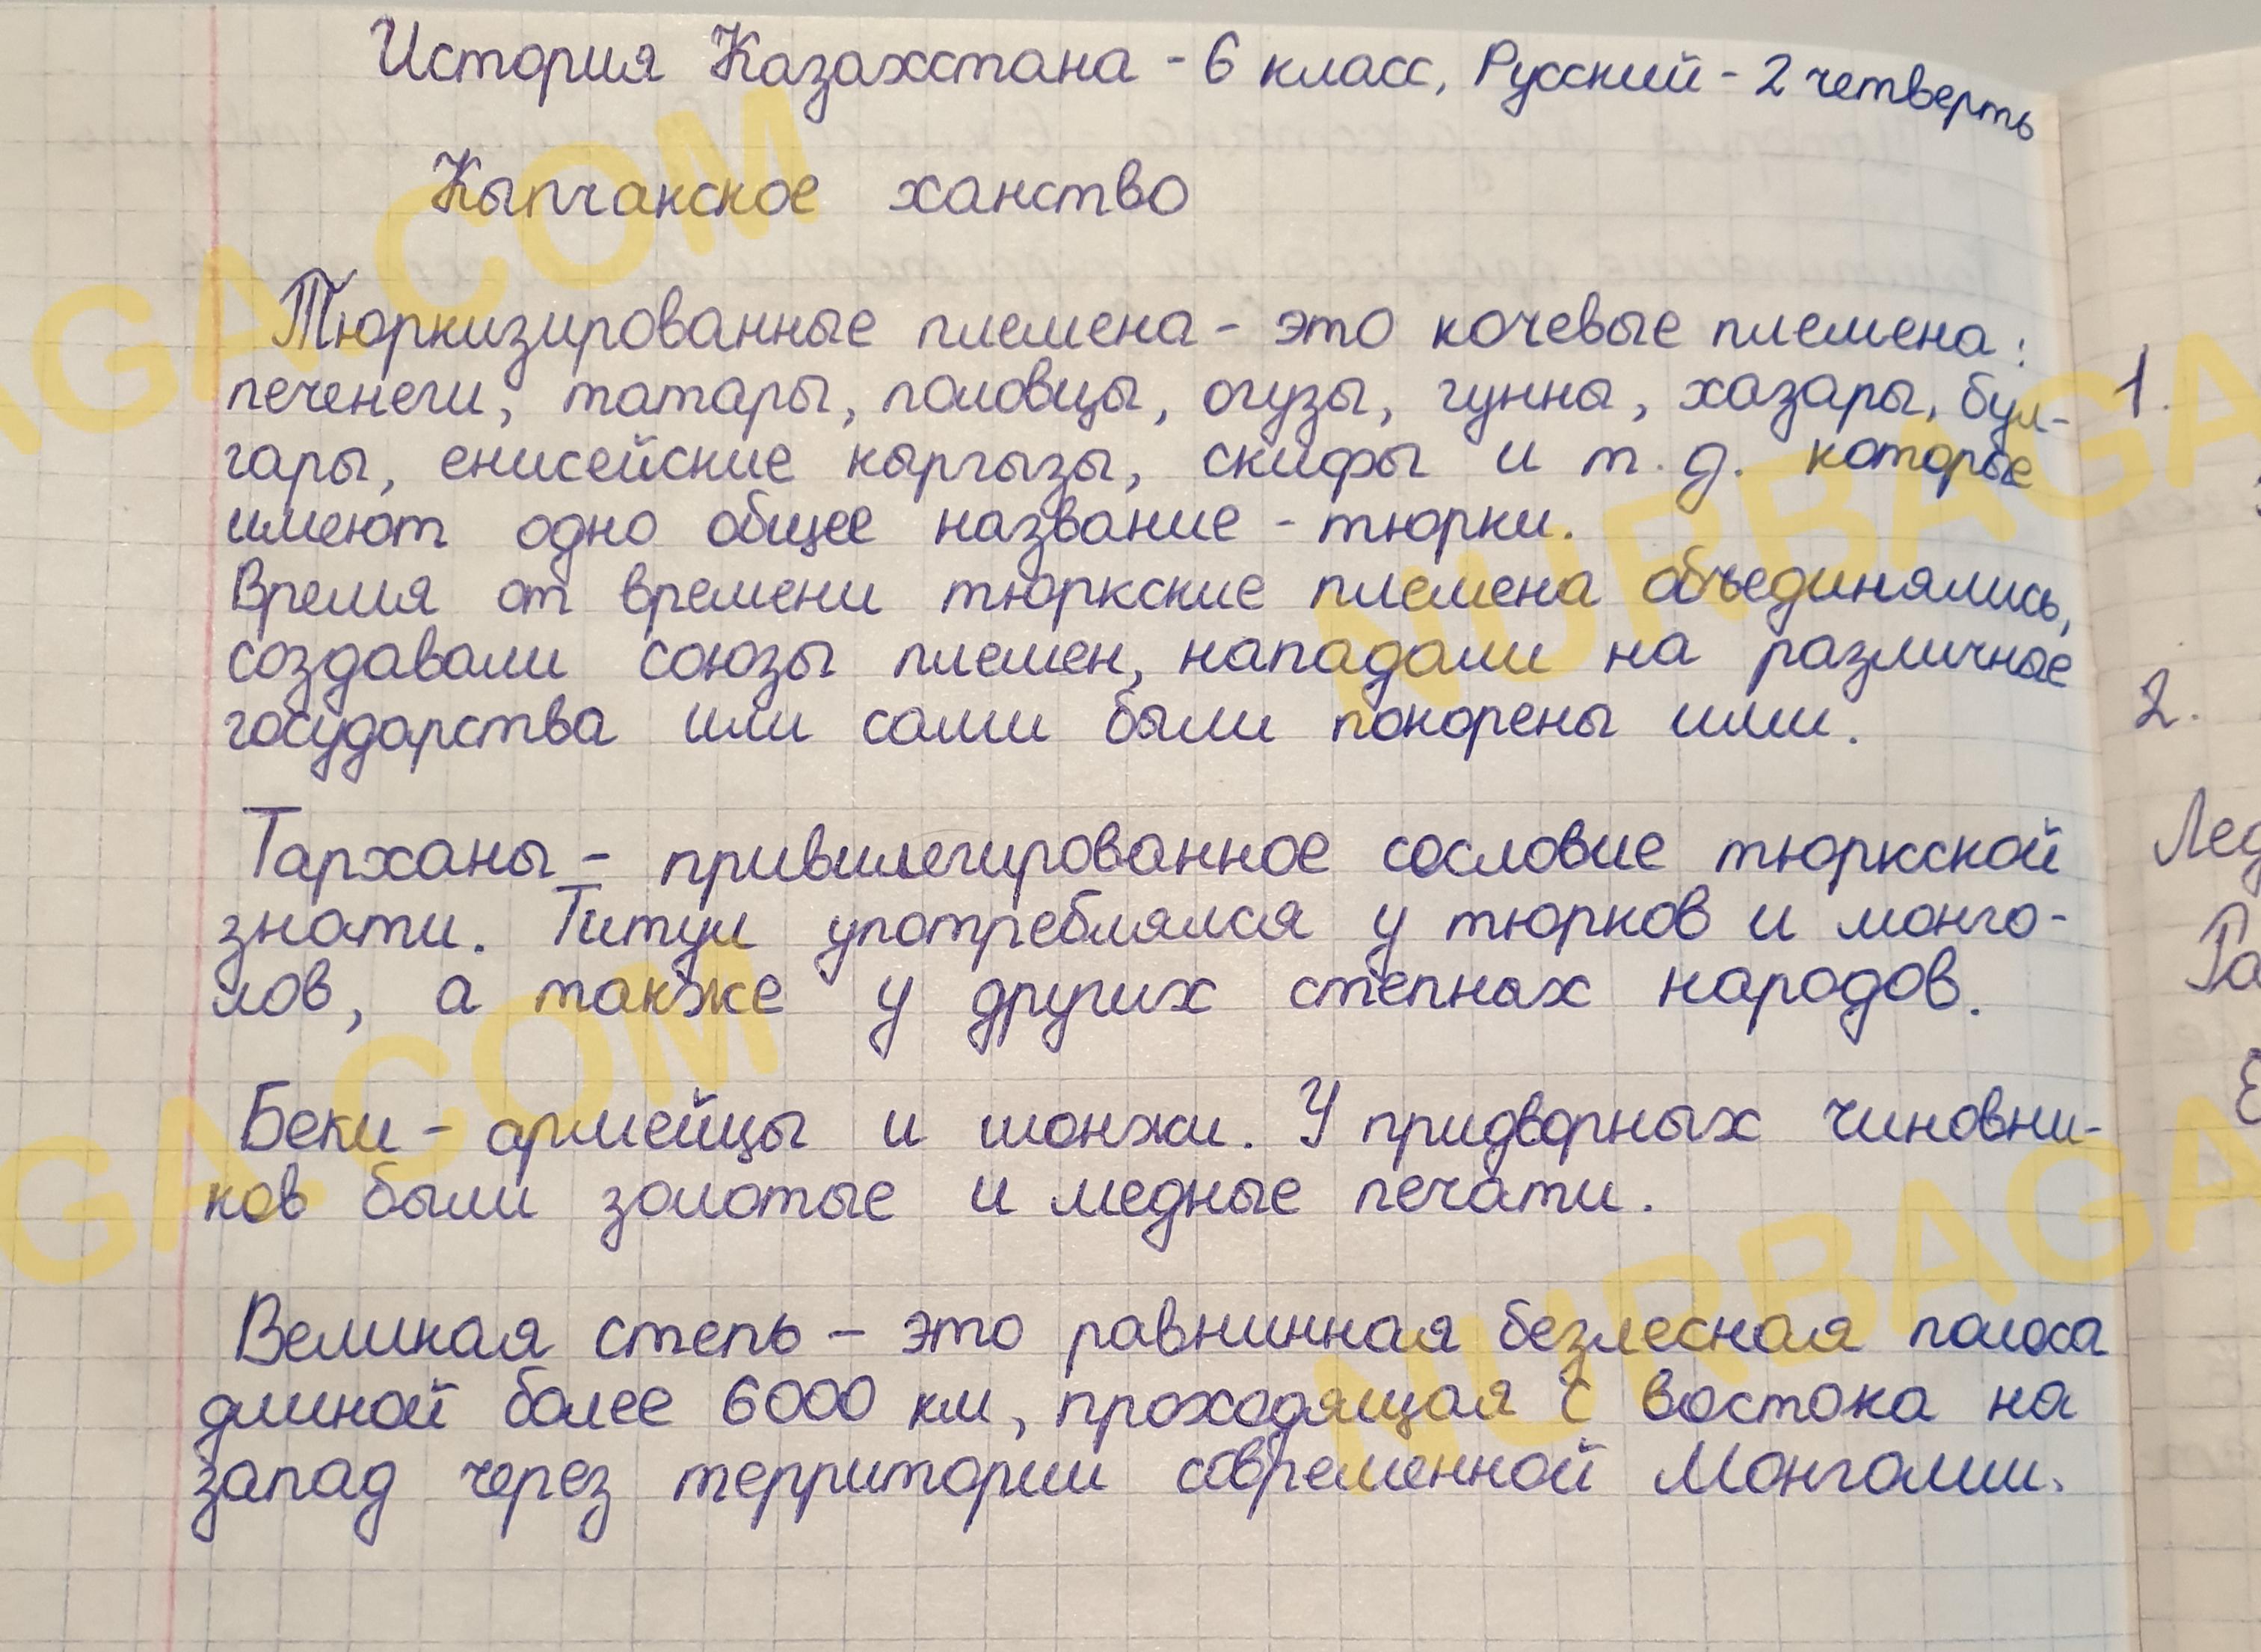 История Казахстана - 6 класс, Русский - 2 четверть
Кыпчакское ханство
Тюркизированные племена - это кочевые племена:
печенеги, татары, половцы, огузы, гунны, хазары, бул-
гары, енисейские кыргызы, скифы и т.д. которые
имеют одно общее название - тюрки.
Время от времени тюркские племена объединялись,
создавали союзы племен, нападали на различные
государства или сами были покорены ими.
Тарханы - привилегированное сословие тюркской
знати. Титул употреблялся у тюрков и монго-
лов, а также у других степных народов.
Беки - армейцы и шонжи. У придворных чиновни-
ков были золотые и медные печати.
Великая степь - это равнинная безлесная полоса
длиной более 6000 км, проходящая с востока на
запад через территории современной Монголии.
1.
2.
NURBAGA.COM
NURBAGA
NURBAGA